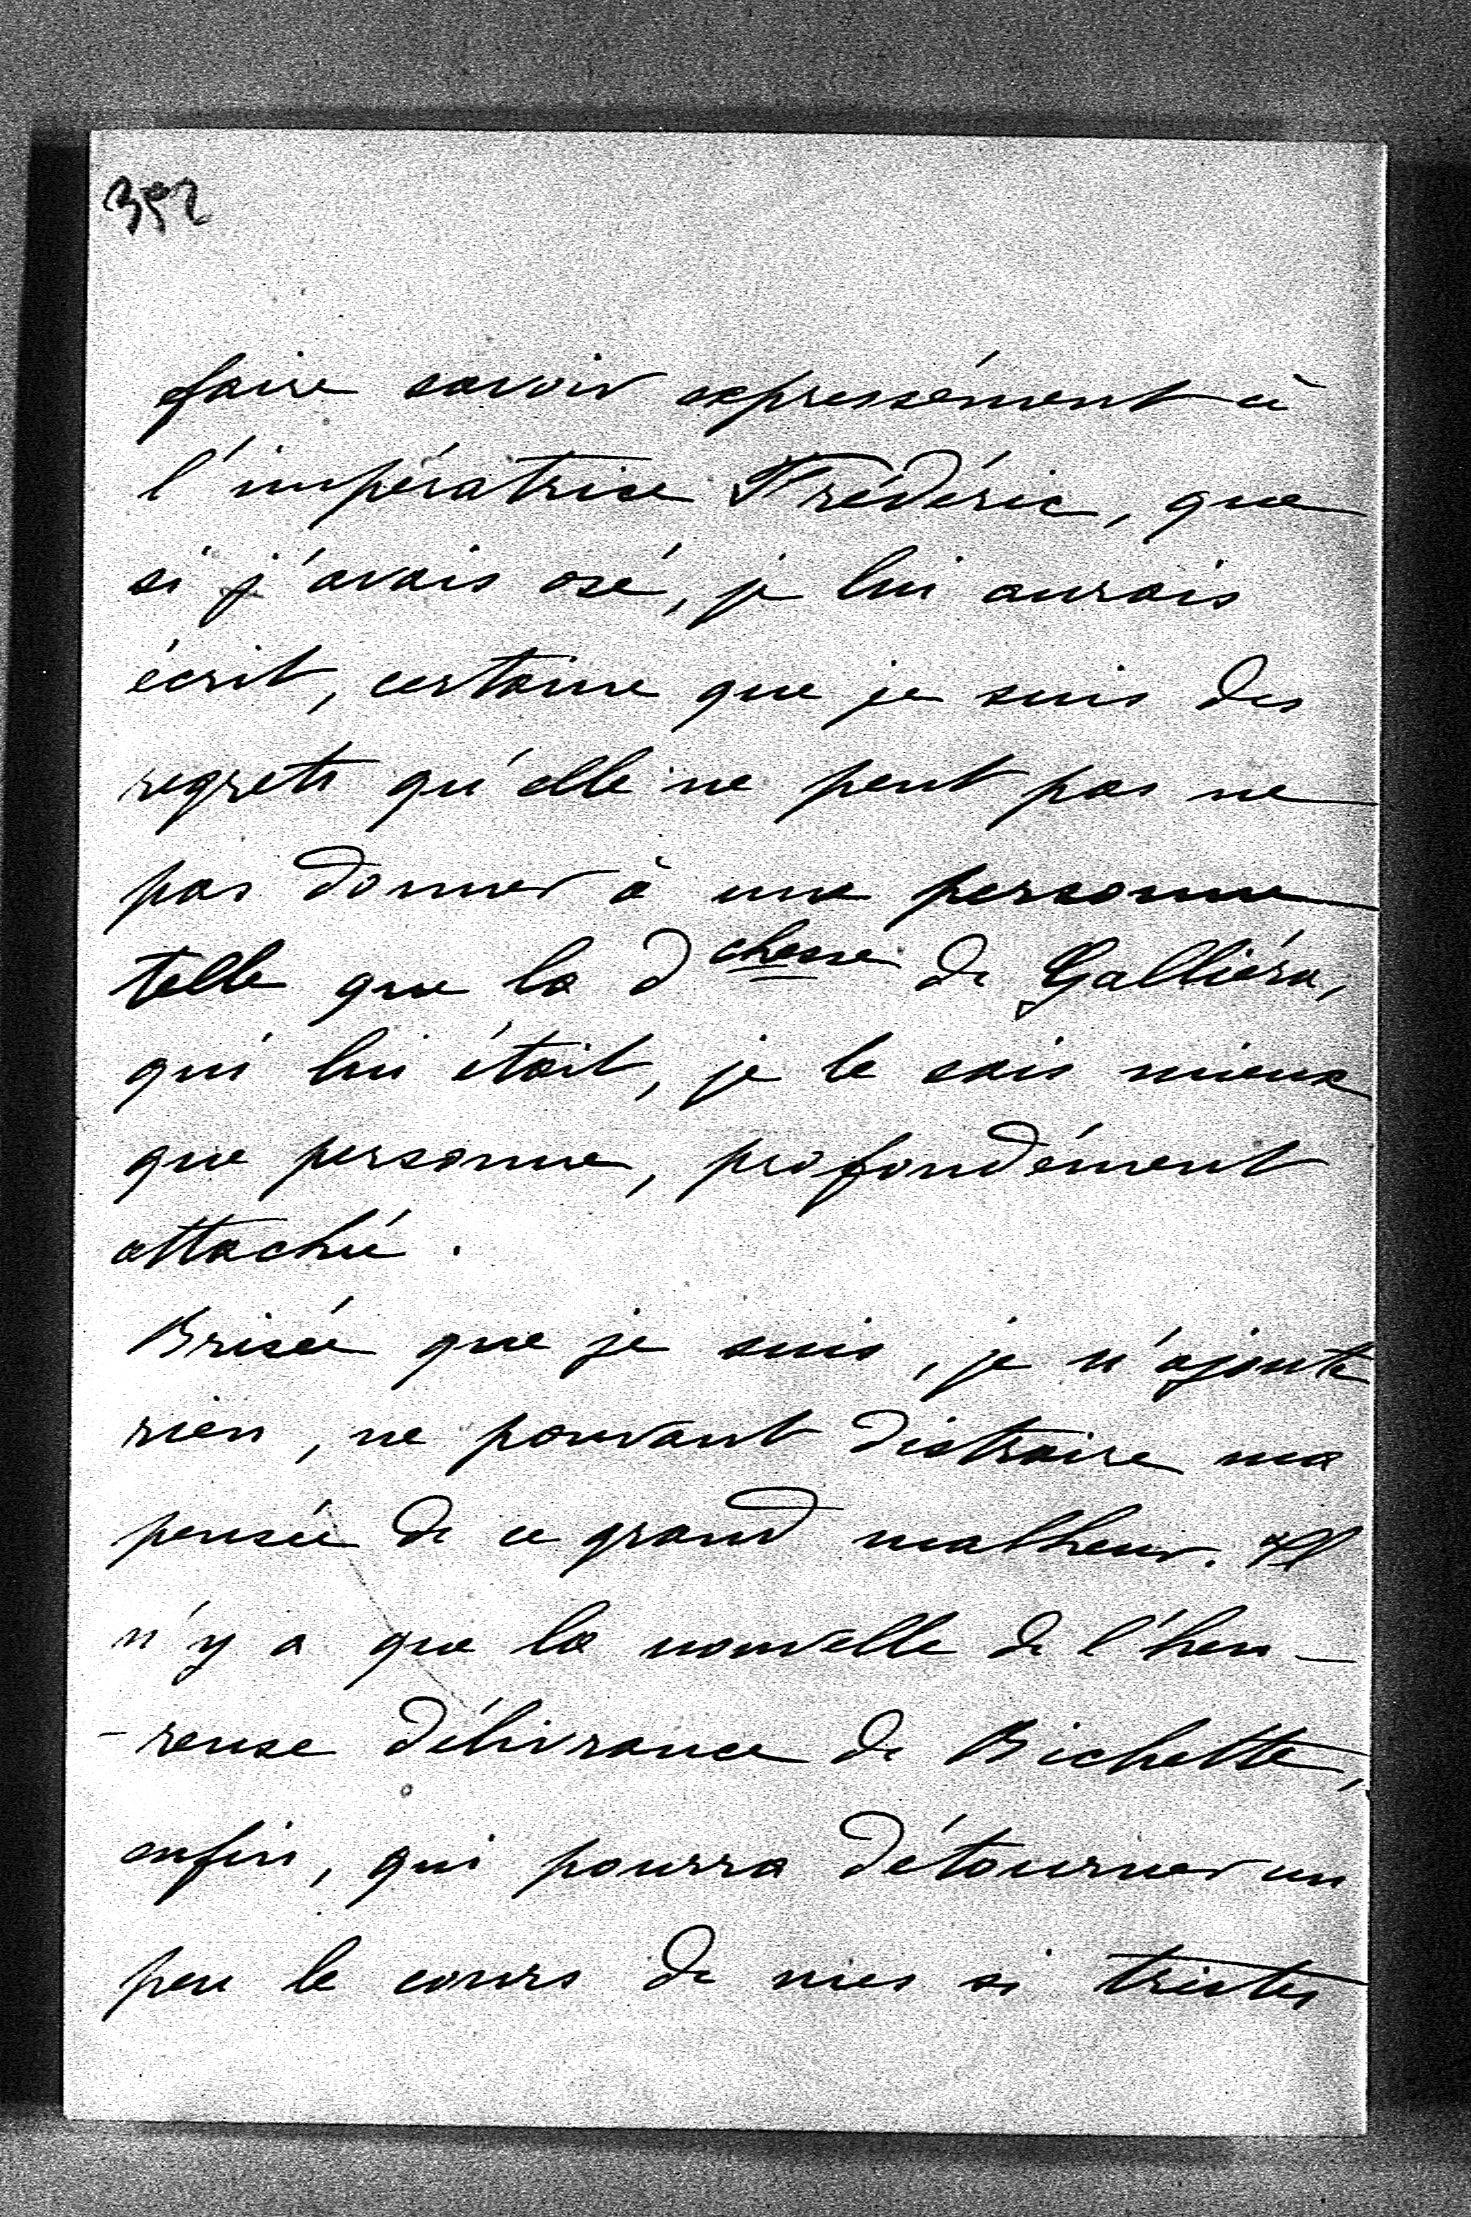 352
faire savoir expressément à
l'impératrice Frédéric, que
si j'avais osé, je lui aurais
écrit, certaine que je suis des
regrets qu'elle ne peut pas ne
pas donner à une personne
telle que la dchesse de Galliéra,
qui lui était, je le sais mieux
que personne, profondément
attachée.
Brisée que je suis, je n'ajoute
rien, ne pouvant distraire ma
pensée de ce grand malheur. Il
n'y a que la nouvelle de l'heu-
-reuse délivrance de Bichette,
enfin, qui pourra détourner un
peu le cours de mes si tristes